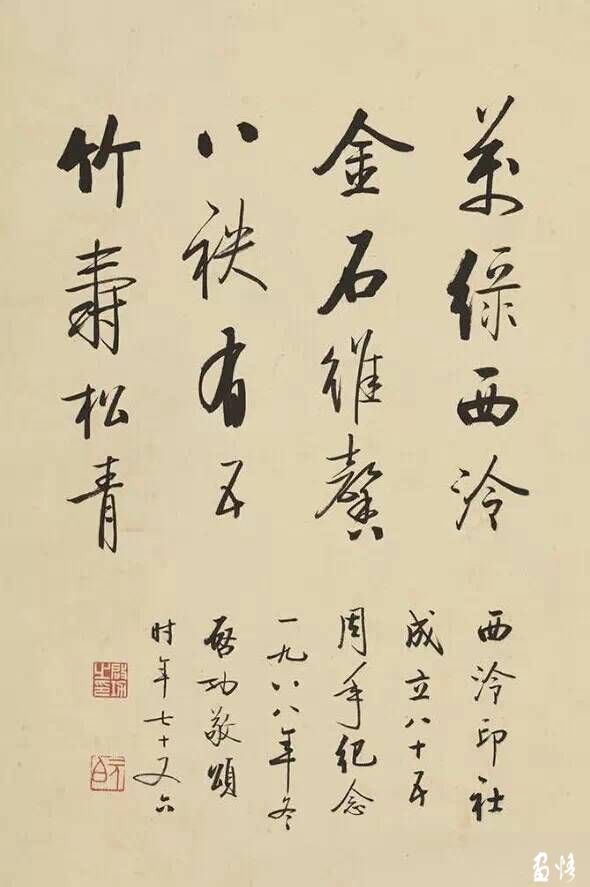 萬綠西泠
金石維馨
八秩有五
竹壽松青
西泠印社
成立八十五
周年紀念
一九八八年冬
啓功敬頌
时年七十又六
啓功之印
元白